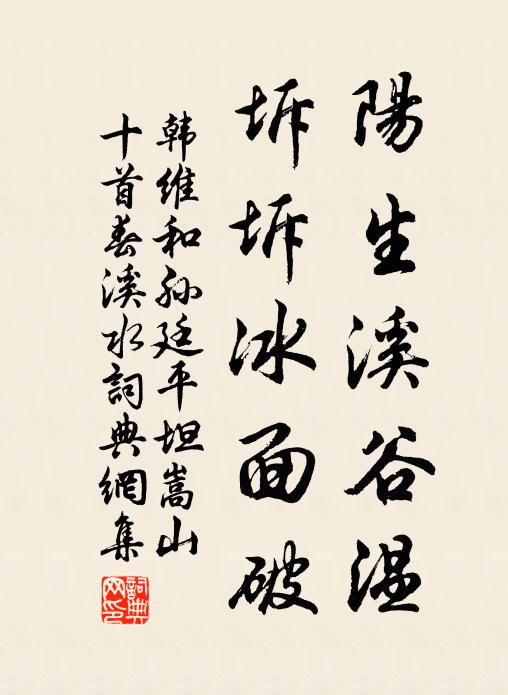 陽生溪谷温
坼坼冰面破
韩维和孙廷平坦嵩山
十首春溪水詞典網集
詞典